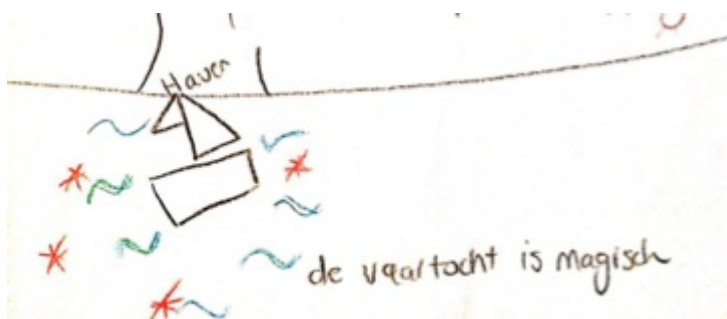 Haven
de vaartocht is magisch